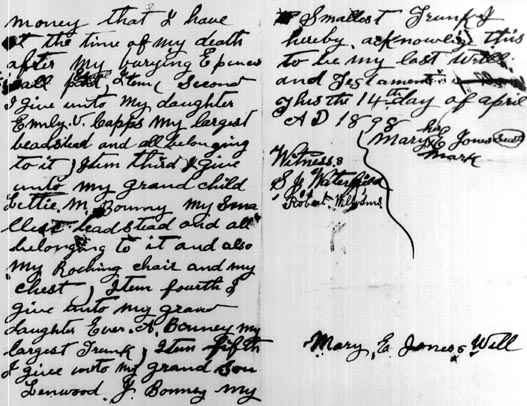 money that I have
at the time of my death
after my burying Expences
all paid, Item Second
I give unto my daughter
Emily. V. Capps my largest
beadstead and all belonging
to it, Item third I give
unto my grand child
Lettie. M. Bonney my Sma
llest beadstead and all
belonging to it and also
my Rocking chair and my
chest, Item fourth I
give unto my grand
daughter Ever. A. Bonney my
largest Trunk, Item fifth
I give unto my grand Son
Lenwood. J. Bonney my
Smallest Trunk I
hereby acknowledg this
to be my last Will
and Testament
This the 14th day of April
A D 1898
her
Mary E Jones Seal
mark
Witness
S
Robert
Mary, E, Jones, Will